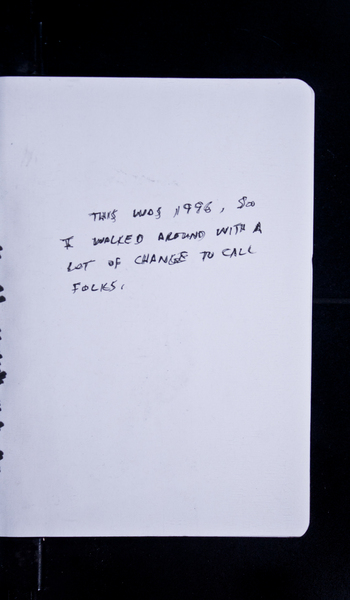 THIS WAS 1996, SO
I WALKED AROUND WITH A
LOT OF CHANGE TO CALL
FOLKS.